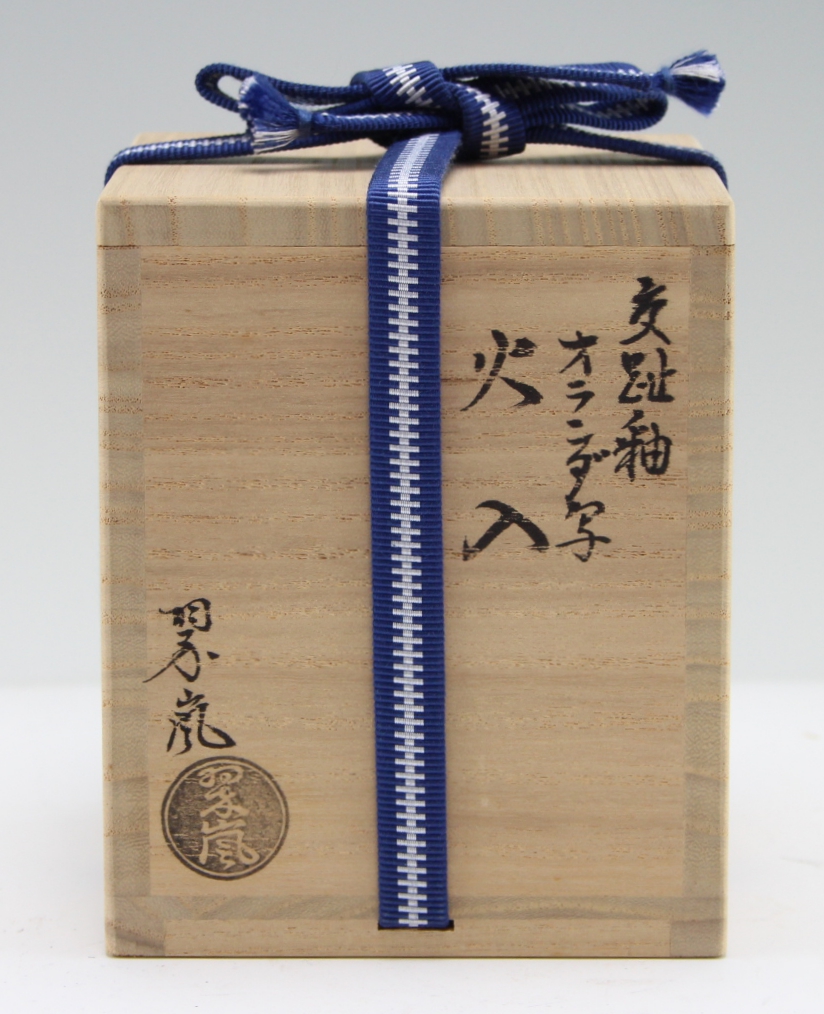 交趾釉
オランダ写
火入
翠嵐
翠嵐